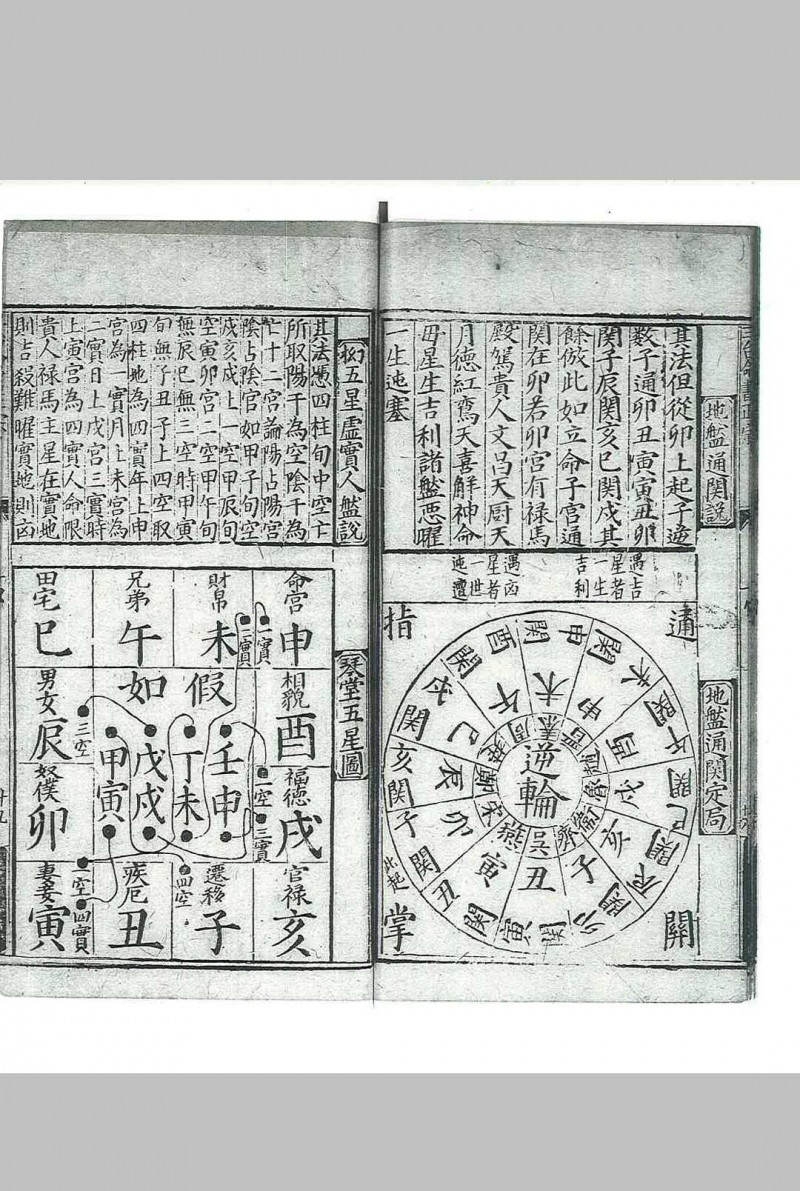 地盤通関說
其法但從卯上起子逆
数子通卯丑寅寅丑卯
関子辰関亥巳関戌其
餘倣此如立命子宮通
関在卯若卯宮有禄馬
殿駕貴人文昌天厨天
月德紅鸞天喜解神命
母星生吉利諸盤惡曜
一生迍塞
遇吉
星者
一生
吉利
遇凶
星者
一世
迍邅
地盤通関定局
通
関
指
掌
逆輪
子丑寅卯辰巳午未申酉戌亥
此起
五星虛實人盤說
其法憑四柱旬中空亡
所取陽干為空陰干為
亡十二宮論陽占陽宮
陰占陰宮如甲子旬空
戌亥戌上一空甲辰旬
空寅卯宮二空甲午旬
無辰巳無三空時甲寅
旬無子丑子上四空取
四柱地為四實年上申
宮為一實月上未宮為
二實日上戌宮三實時
上寅宮為四實人命限
貴人禄馬主星在實地
則吉殺難曜實地則凶
琴堂五星圖
命宮 申
財帛 未
兄弟 午
田宅 巳
相貌 酉
福德 戌
官禄 亥
男女 辰
奴僕 卯
妻妾 寅
疾厄 丑
遷移 子
假如
壬申
丁未
戊戌
甲寅
一實
二實
三實
四實
一空
二空
三空
四空